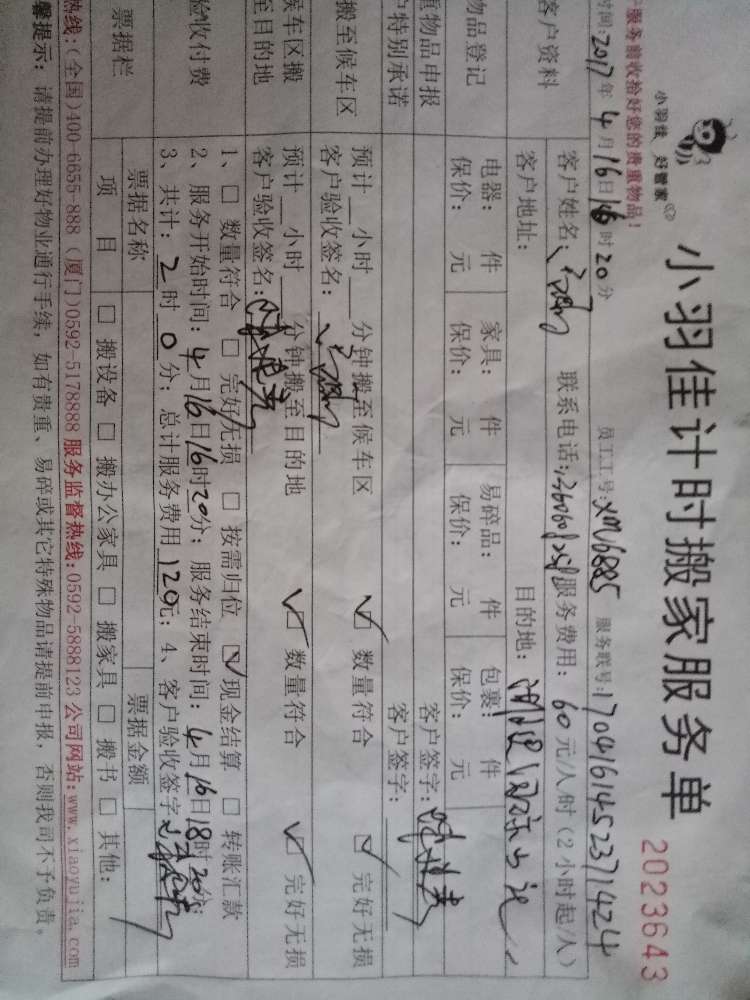 小羽佳 好管家
小羽佳计时搬家服务单 2023643
服务前收拾好您的贵重物品!
时间:2017年4月16日16时20分 员工工号:XM6885 服务联号:17041614523714424
客户资料 客户姓名: 联系电话: 服务费用:60元/人时(2小时起/人)
客户地址: 目的地:
物品登记 电器: 件 家具: 件 易碎品: 件 包裹: 件
保价: 元 保价: 元 保价: 元 保价: 元
物品申报 客户签字:
特别承诺 客户签字:
搬至候车区 预计__小时__分钟搬至候车区 ☑ 数量符合 ☑ 完好无损
客户验收签名:
候车区搬至目的地 预计__小时__分钟搬至目的地 ☑ 数量符合 ☑ 完好无损
客户验收签名:
验收付费 1、□ 数量符合 □ 完好无损 □ 按需归位 ☑ 现金结算 □ 转账汇款
2、服务开始时间:4月16日16时20分; 服务结束时间:4月16日18时20分;
3、共计:2时0分; 总计服务费用120元; 4、客户验收签字
票据栏 票据名称 票据金额
项 目 □ 搬设备 □ 搬办公家具 □ 搬家具 □ 搬书 □ 其他:
热线:(全国)400-6655-888 (厦门)0592-5178888 服务监督热线:0592-5888123 公司网站:www.xiaoyujia.com
馨提示: 请提前办理好物业通行手续,如有贵重、易碎或其它特殊物品请提前申报,否则我司不予负责。